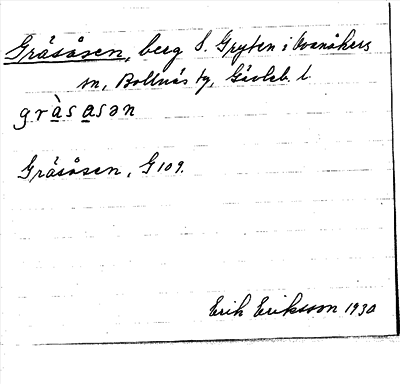 Gråsåsen, berg S. Gryten i Ovanåkers
sn, Bollnäs tg, Gävleb. l.
gràsasən
Gråsåsen, G 109.
Erik Eriksson 1930